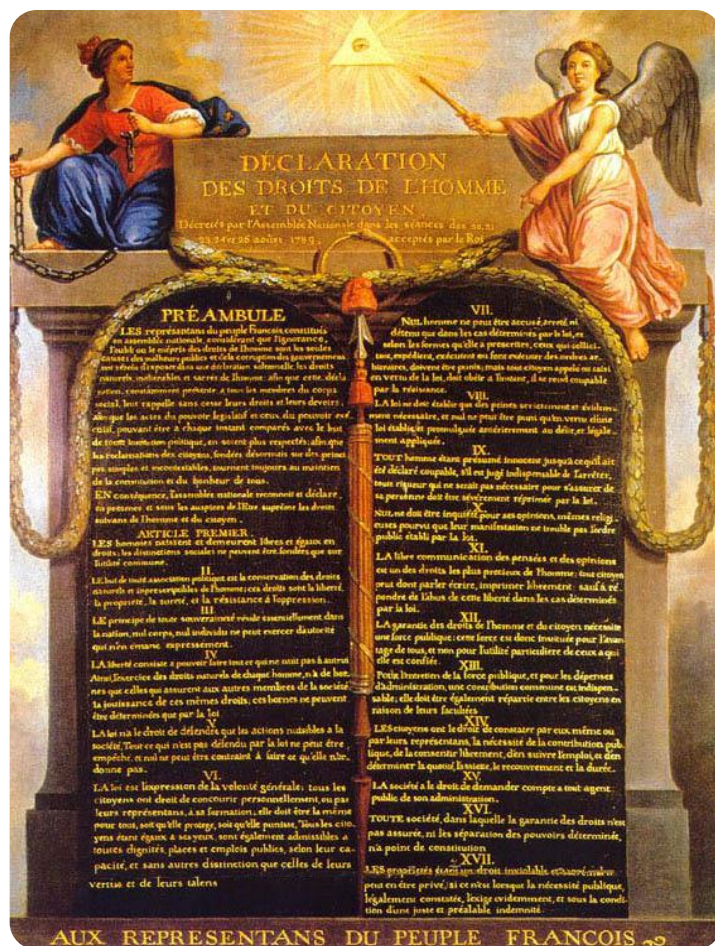 DÉCLARATION
DES DROITS DE L'HOMME
ET DU CITOYEN,
Décretés par l'Assemblée Nationale dans les séances des 20, 21
23, 24 et 26 aoûst 1789, acceptés par le Roi
PRÉAMBULE
LES représentans du peuple François, constitués
en assemblée nationale, considérant que l'ignorance,
l'oubli ou le mépris des droits de l'homme sont les seules
causes des malheurs publics et de la corruption des gouvernemens
ont résolu d'exposer dans une déclaration solemnelle, les droits
naturels, inaliénables et sacrés de l'homme; afin que cette décla
ration, constamment présente a tous les membres du corps
social, leur rappelle sans cesse leurs droits et leurs devoirs;
afin que les actes du pouvoir legislatif et ceux du pouvoir exé
cutif, pouvant être à chaque instant comparés avec le but
de toute institution politique, en soient plus respectés; afin que
les reclamations des citoyens, fondées désormais sur des princi
pes simples et incontestables, tournent toujours au maintien
de la constitution et du bonheur de tous.
EN conséquence, l'assemblée nationale reconnoit et déclare,
en presence et sous les auspices de l'Etre suprême les droits
suivans de l'homme et du citoyen.
ARTICLE PREMIER.
LES hommes naissent et demeurent libres et égaux en
droits; les distinctions sociales ne peuvent être fondées que sur
l'utilité commune.
II.
LE but de toute association politique est la conservation des droits
naturels et imprescriptibles de l'homme; ces droits sont la liberté,
la propriété, la sureté, et la résistance à l'oppression.
III.
LE principe de toute souveraineté réside essentiellement dans
la nation, nul corps, nul individu ne peut exercer d'autorité
qui n'en émane expressement.
IV.
LA liberté consiste a pouvoir faire tout ce qui ne nuit pas à autrui
Ainsi, l'exercice des droits naturels de chaque homme, n'a de bor
nes que celles qui assurent aux autres membres de la société
la jouissance de ces mêmes droits; ces bornes ne peuvent
être déterminées que par la loi
V.
LA loi n'a le droit de défendre que les actions nuisibles à la
société. Tout ce qui n'est pas défendu par la loi ne peut être
empêché, et nul ne peut être contraint à faire ce qu'elle n'or
donne pas.
VI.
LA loi est l'expression de la volonté générale; tous les
citoyens ont droit de concourir personnellement, ou par
leurs représentans, à sa formation; elle doit être la même
pour tous, soit qu'elle protege, soit qu'elle punisse. Tous les cito-
yens étant égaux à ses yeux, sont également admissibles à
toutes dignités, places et emplois publics, selon leur ca-
pacité, et sans autres distinction que celles de leurs
vertus et de leurs talens
VII.
NUL homme ne peut être accusé, arreté, ni
détenu que dans les cas déterminés par la loi, et
selon les formes qu'elle a prescrites, ceux qui sollici-
tent, expédient, exécutent ou font exécuter des ordres ar-
bitraires, doivent être punis; mais tout citoyen appelé ou saisi
en vertu de la loi, doit obéir a l'instant, il se rend coupable
par la résistance.
VIII.
LA loi ne doit établir que des peines strictement et évidem-
ment nécessaire, et nul ne peut être puni qu'en vertu d'une
loi établie et promulguée antérieurement au délit, et légale-
ment appliquée.
IX.
TOUT homme étant présumé innocent jusqu'à ce qu'il ait
été déclaré coupable, s'il est jugé indispensable de l'arrêter,
toute rigueur qui ne serait pas nécessaire pour s'assurer de
sa personne doit être sévèrement réprimée par la loi.
X.
NUL ne doit être inquiété pour ses opinions, mêmes religi-
euses pourvu que leur manifestation ne trouble pas l'ordre
public établi par la loi.
XI.
LA libre communication des pensées et des opinions
est un des droits les plus precieux de l'homme; tout citoyen
peut donc parler écrire, imprimer librement; sauf à ré-
pondre de l'abus de cette liberté dans les cas déterminés
par la loi.
XII.
LA garantie des droits de l'homme et du citoyen nécessite
une force publique; cette force est donc instituée pour l'avan-
tage de tous, et non pour l'utilité particuliere de ceux a qui
elle est confiée.
XIII.
POUR l'entretien de la force publique, et pour les dépenses
d'administration, une contribution commune est indispen-
sable; elle doit être également répartie entre les citoyens en
raison de leurs facultées
XIV.
LES citoyens ont le droit de constater par eux même ou
par leurs représentans, la nécessité de la contribution pub-
lique, de la consentir librement, d'en suivre l'emploi, et d'en
déterminer la quotité, l'assiette, le recouvrement et la durée.
XV.
LA société a le droit de demander compte a tout agent
public de son administration.
XVI.
TOUTE société, dans laquelle la garantie des droits n'est
pas assurée, ni les séparation des pouvoirs déterminée,
n'a point de constitution
XVII.
LES propriétés étant un droit inviolable et sacré, nul ne
peut en être privé, si ce n'est lorsque la nécessité publique,
légalement constatée, l'exige evidemment, et sous la condi-
tion d'une juste et préalable indemnité.
AUX REPRESENTANS DU PEUPLE FRANCOIS